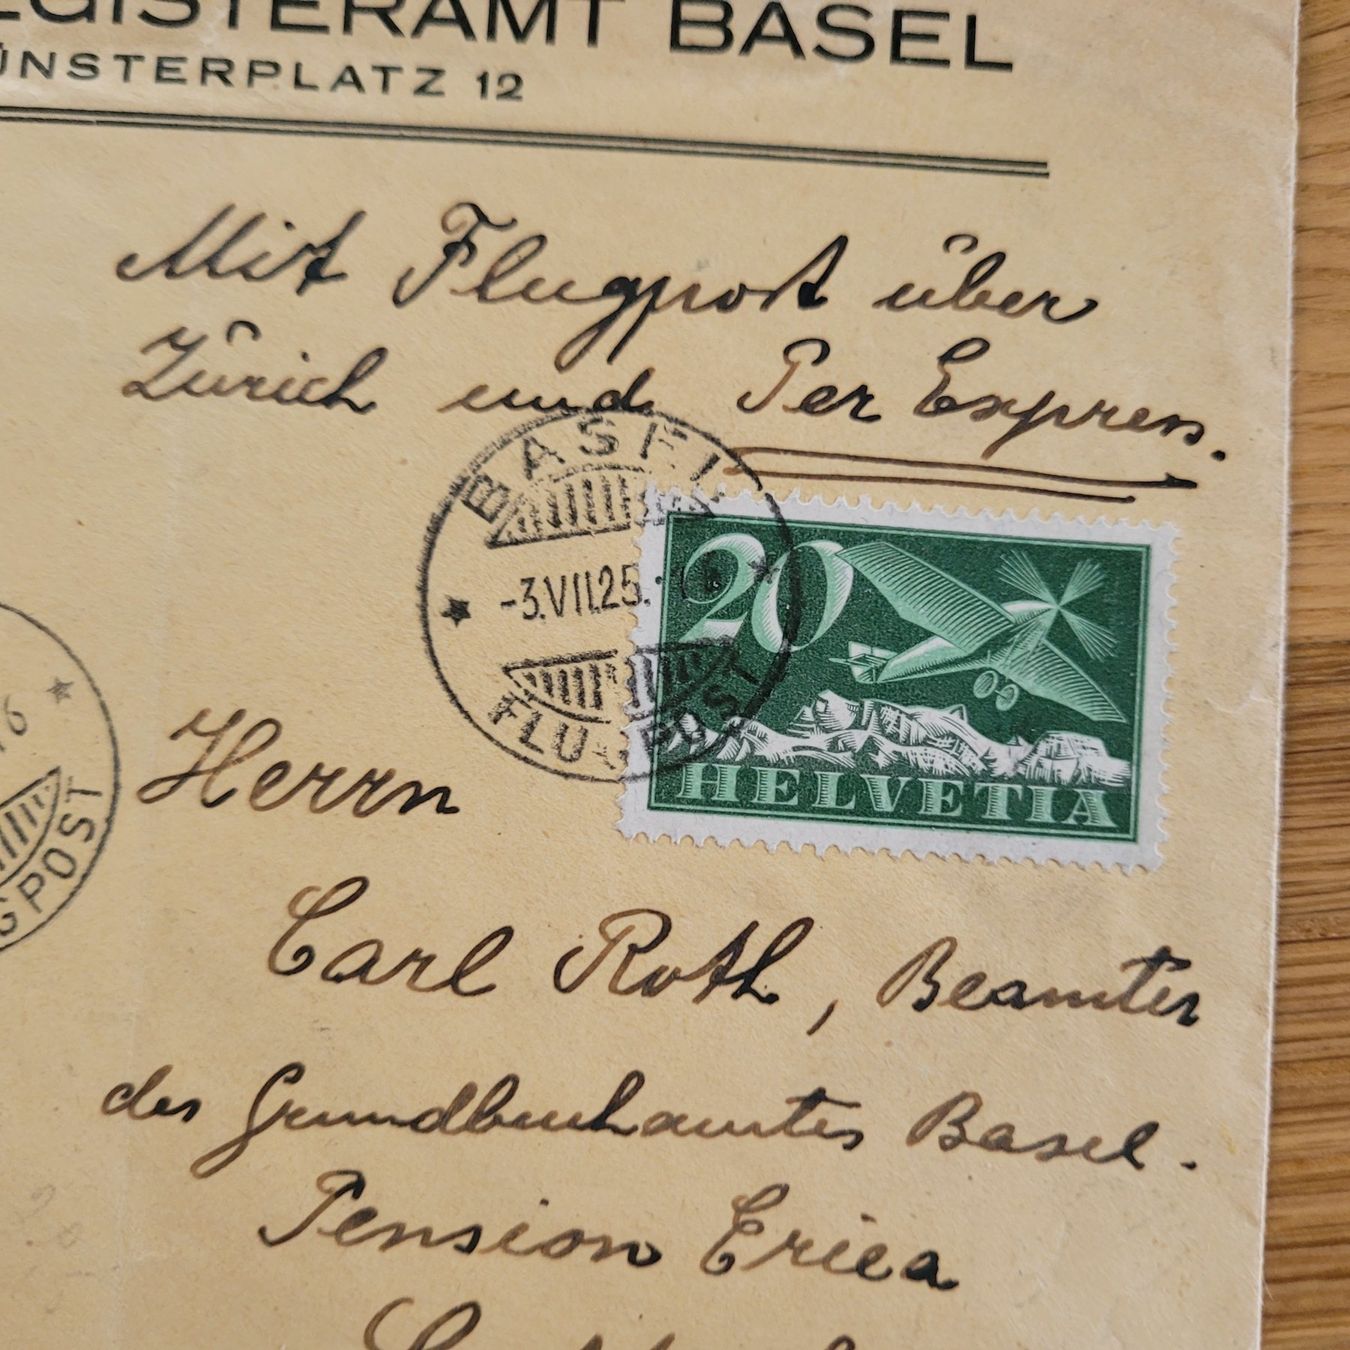 EGISTERAMT BASEL
ÜNSTERPLATZ 12
Mit Flugpost über
Zürich und Per Express.
BASEL
-3.VII.25.
FLUGPOST
20
HELVETIA
16
GPOST
Herrn
Carl Roth, Beamter
des Grundbuchamtes Basel.
Pension Erica